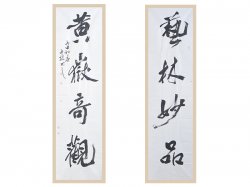 藝林妙品
黃嶽奇觀